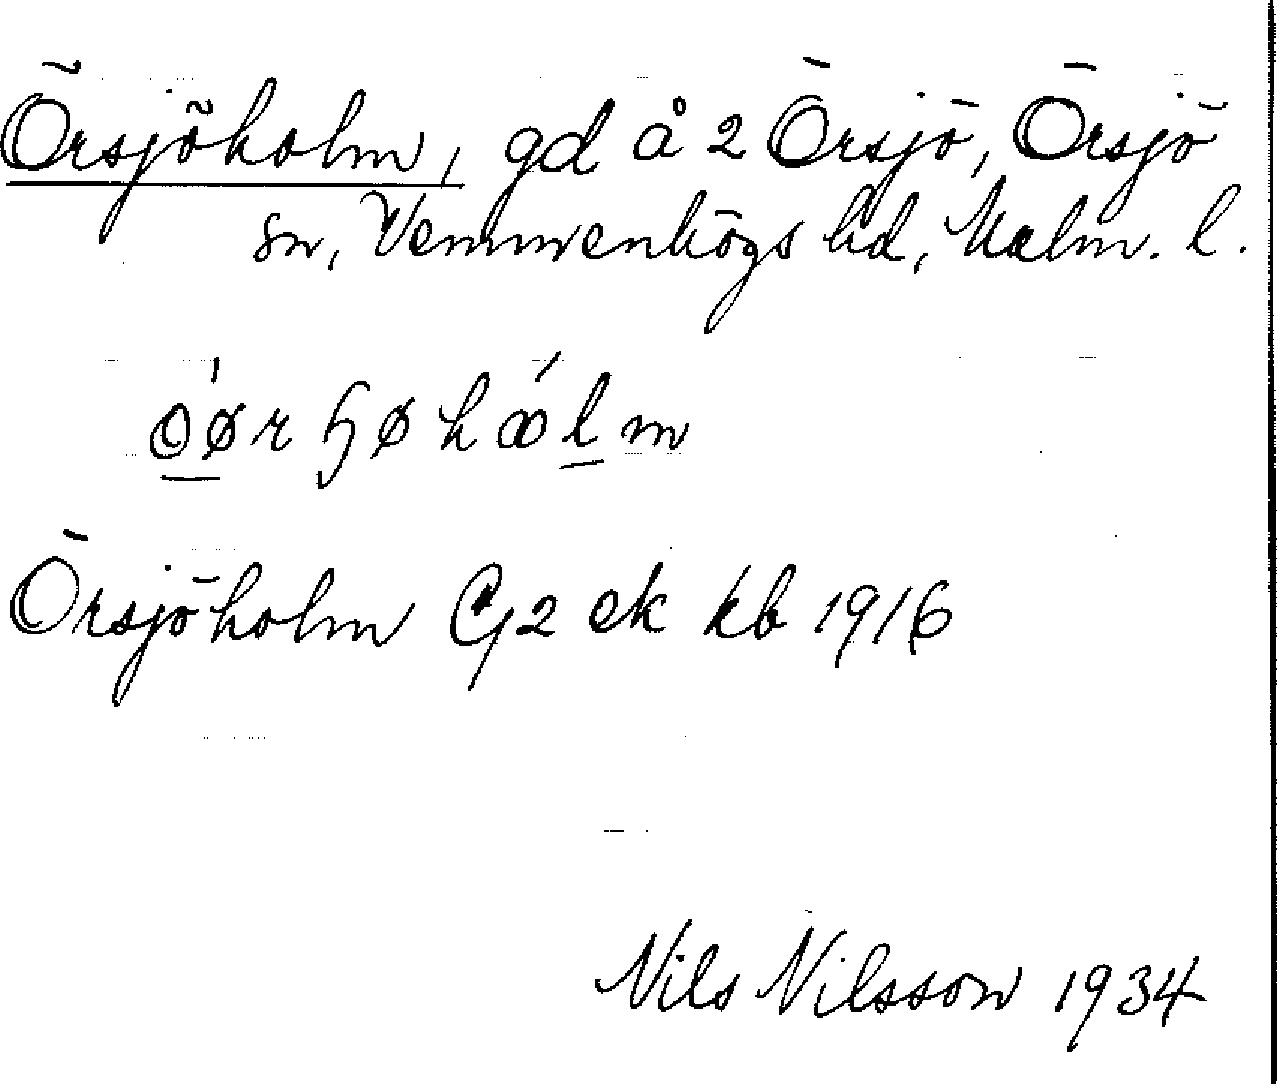 Örsjöholm, gd å 2 Örsjö, Örsjö
sn, Vemmenhögs hd, Malm. l.
Örsjöholm G2 ek kb 1916
Nils Nilsson 1934